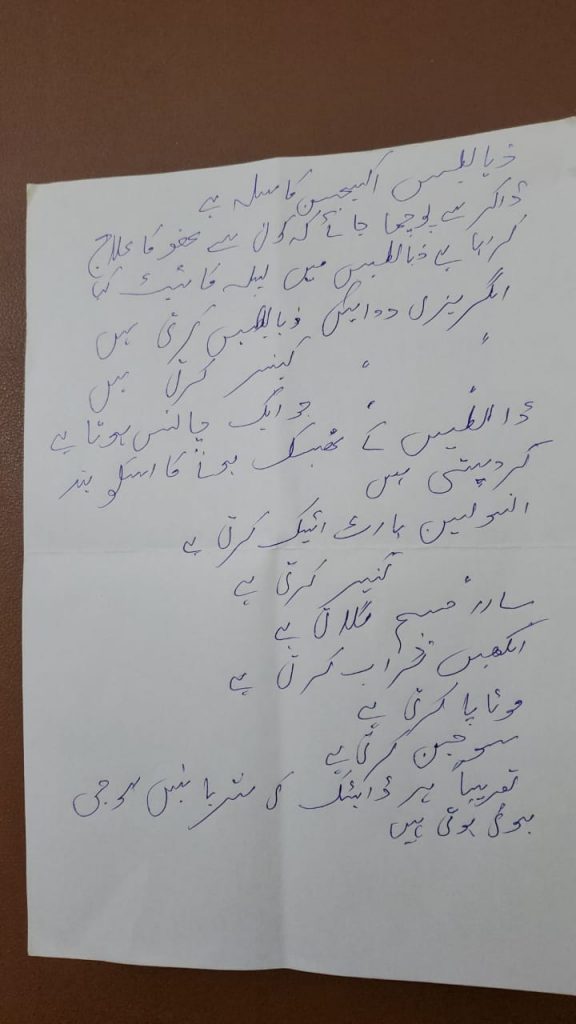 ذیابطیس آکسیجن کا مسلہ ہے
ڈاکٹر سے پوچھا جائے کہ کون سے عضو کا علاج
کر رہا ہے ذیابطیس میں لبلہ کا
انگریزی دوائیں ذیابطیس کرتی ہیں
" " کینسر کرتی ہیں
" جو ایک چانس ہوتا ہے
کے ٹھیک ہونے کا اسکو بند
کر دیتی ہیں
انسولین ہارٹ اٹیک کرتی ہے
کینسر کرتی ہے
سارہ جسم گلاتی ہے
آنکھیں خراب کرتی ہے
موٹاپا کرتی ہے
سوجن کرتی ہے
تقریباً ہر ڈائبٹک کی شریانیں سوجی
ہوئی ہوتی ہیں